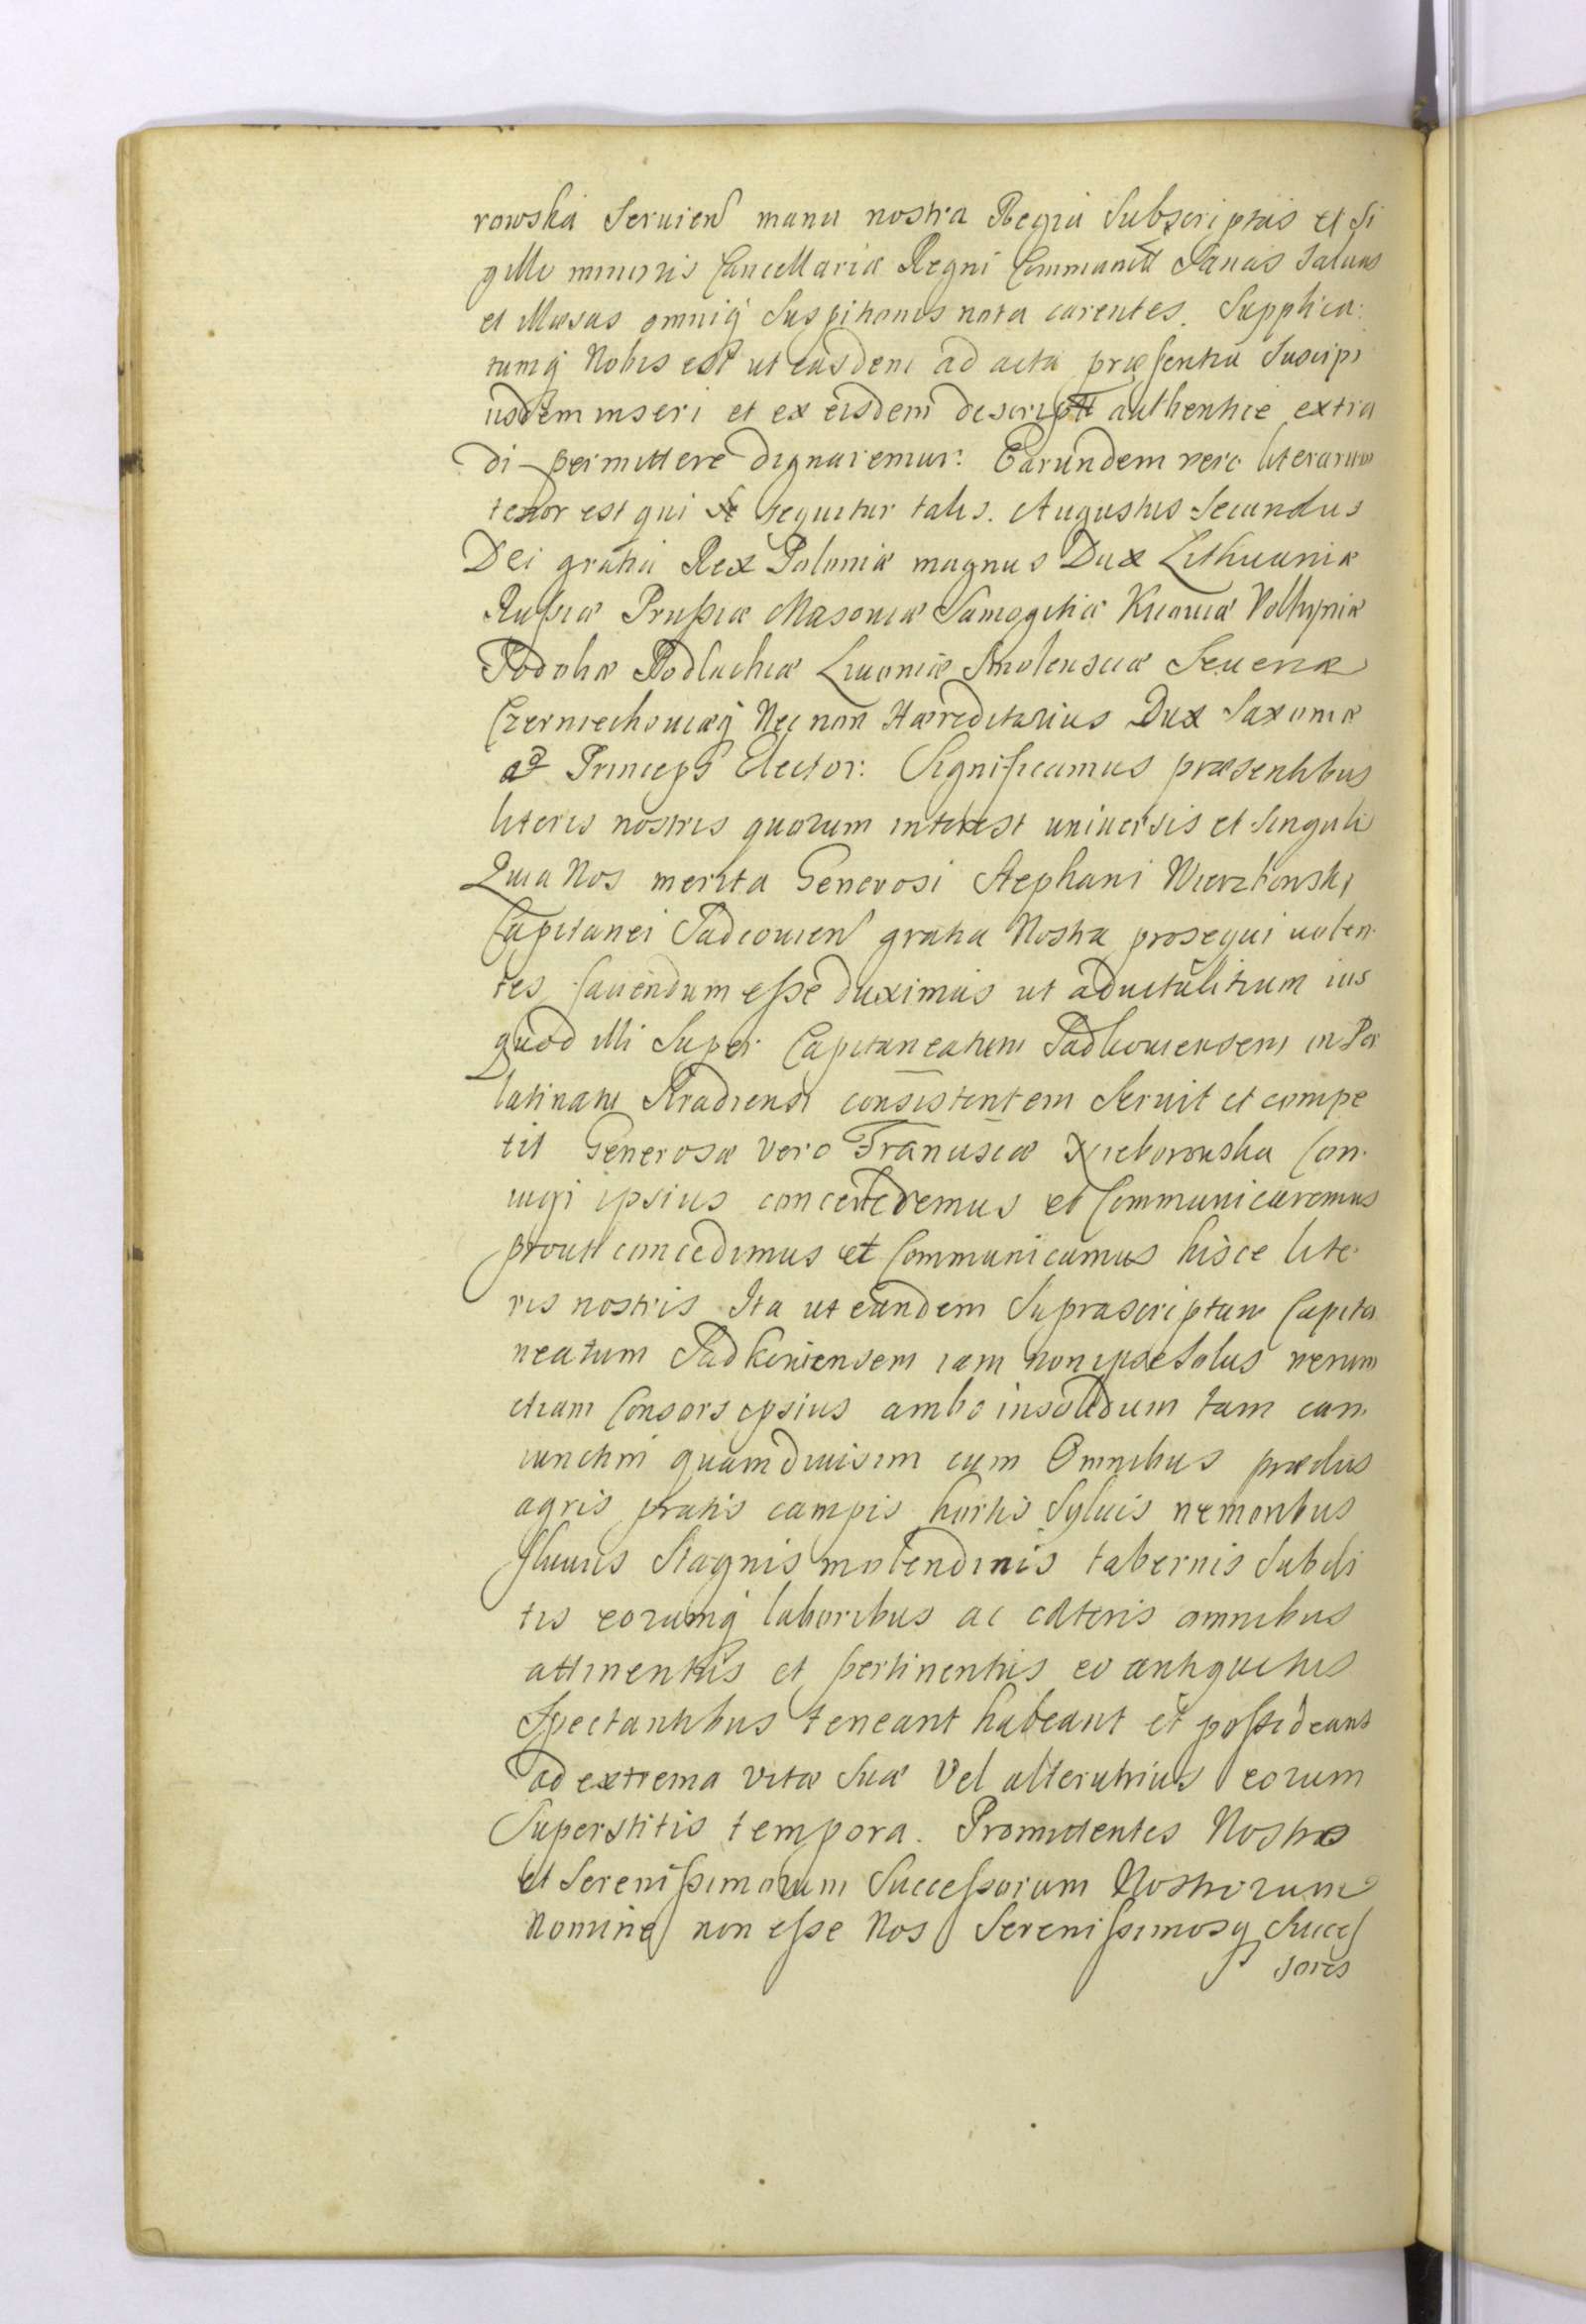 rowska Seruien manu nostra Regia Subscriptas et Si
gillo minoris Cancellariæ Regni Communitt Sanas Saluas
et illæsas omniq Suspitionis nota carentes. Supplica:
tumq Nobis est ut easdem ad acta præsentia Suscipi
iisdem inseri et ex eisdem descriptt authentice extra
di permittere dignaremur: Earundem vero literarum
tenor est qui se sequitur talis. Augustus Secundus
Dei gratia Rex Poloniæ magnus Dux Lithuaniæ
Russiæ Prussiæ Masoviæ Samogitiæ Kiouiæ Volhyniæ
Podoliæ Podlachiæ Liuoniæ Smolensciæ Seueriæ
Czerniechouiæq Nec non Hæreditarius Dux Saxoniæ
ac Princeps Elector: Significamus præsentibus
literis nostris quorum interest uniuersis et singulis
Quia Nos merita Generosi Stephani Wierzbowski
Capitanei Jadcouien gratia Nostra prosequi uolen
tes faciendum esse duximus ut aduitalitium ius
quod illi Super Capitaneatum Jadkouiensem in Pa
latinatu Siradiensi consistentem Seruit et compe
tit Generosæ vero Franciscæ Nieborowska Con
iugi ipsius concederemus et Communicaremus
proutt concedimus et Communicamus hisce lite
ris nostris Ita ut eundem Suprascriptum Capita
neatum Jadkouiensem iam non ipse Solus verum
etiam Consors ipsius ambo insolidum tam con
iunctim quam diuisim cum Omnibus prædiis
agris pratis campis hortis Syluis nemoribus
fluuiis Stagnis molendinis tabernis Subdi
tis eorumq laboribus ac cæteris omnibus
attinentiis et pertinentiis eo antiquitus
Spectantibus teneant habeant et possideant
ad extrema vitæ Suæ Vel alterutrius eorum
Superstitis tempora. Promittentes Nostro
et Serenissimorum Successorum Nostrorum
Nomine non esse Nos Serenissimosq Succes
sores